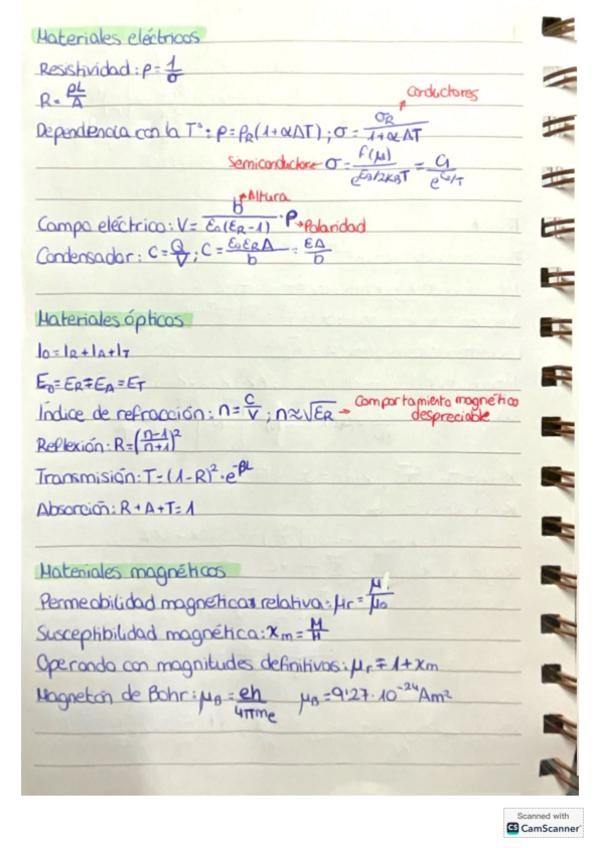 Materiales eléctricos
Resistividad: ρ = 1/σ
R = ρL/A
Conductores
Dependencia con la Tª: ρ = ρR (1+α∆T); σ = σR/1+α∆T
Semiconductore σ = f(μ)/e^EB/2KBT = C1/e^C2/T
Altura
Campo eléctrico: V = b/ε0(εR-1) · P → Polaridad
Condensador: C = Q/V; C = ε0εRA/b = εA/b
Materiales ópticos
I0 = IR + IA + IT
E0 = ER ∓ EA = ET
Índice de refracción: n = c/v; n ≈ √εR → Comportamiento magnético
despreciable
Reflexión: R = (n-1/n+1)²
Transmisión: T = (1-R)² · e^-βL
Absorción: R + A + T = 1
Materiales magnéticos
Permeabilidad magnéticas relativa: μr = μ/μ0
Susceptibilidad magnética: χm = M/H
Operando con magnitudes definitivas: μr = 1 + χm
Magnetón de Bohr: μB = eh/4πme μB = 9'27·10^-24 Am²
Scanned with
CS CamScanner